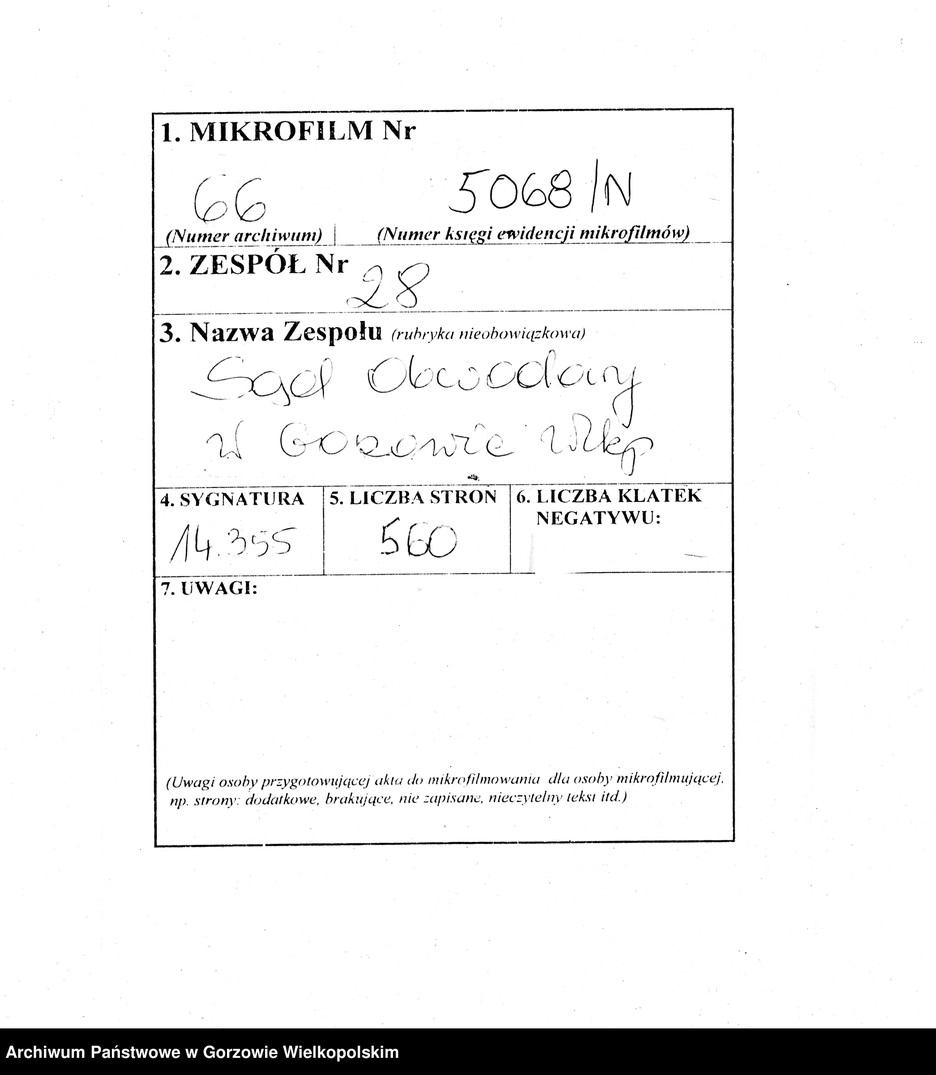 1. MIKROFILM Nr
66 5068/N
(Numer archiwum) (Numer księgi ewidencji mikrofilmów)
2. ZESPÓŁ Nr 28
3. Nazwa Zespołu (rubryka nieobowiązkowa)
Sąd Obwodowy
w Gorzowie Wlkp
4. SYGNATURA 5. LICZBA STRON 6. LICZBA KLATEK
NEGATYWU:
14.355 560 —
7. UWAGI:
(Uwagi osoby przygotowującej akta do mikrofilmowania dla osoby mikrofilmującej,
np. strony: dodatkowe, brakujące, nie zapisane, nieczytelny tekst itd.)
Archiwum Państwowe w Gorzowie Wielkopolskim